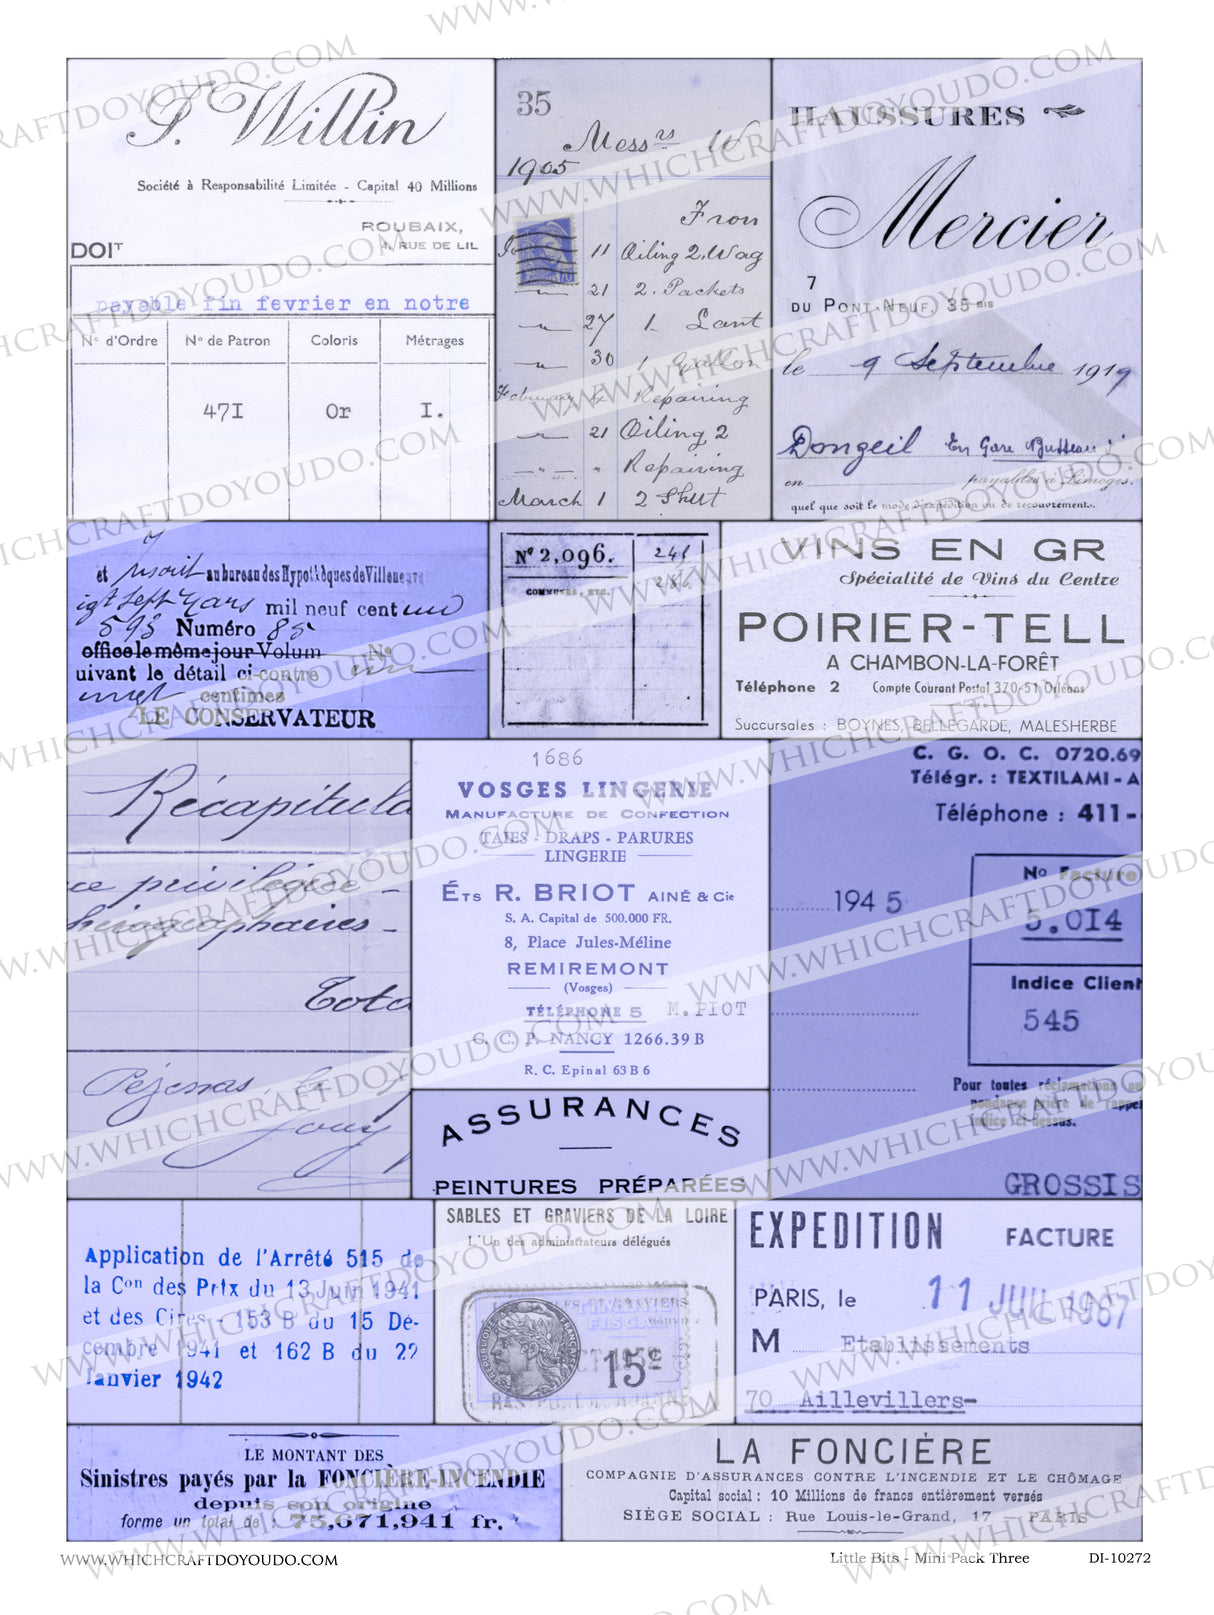 P. Willin
Société à Responsabilité Limitée - Capital 40 Millions
ROUBAIX,
4, RUE DE LIL
DOIT
payable fin fevrier en notre
N° d'Ordre N° de Patron Coloris Métrages
47I Or I.
35
Messrs W
1905
Fron
11 Oiling 2. Wag
21 2. Packets
27 1 Lant
30 1 Gallon
February Repairing
21 Oiling 2
" Repairing
March 1 2 Shut
HAUSSURES
Mercier
7
DU PONT-NEUF, 35 BIS
le 9 Septembre 1919
Dongeil En Gare
en payables à Limoges.
quel que soit le mode d'expédition ou de recouvrement.
et au bureau des Hypothèques de Villeneuve
Sept mil neuf cent
593 Numéro 85
office le même jour Volum N°
uivant le détail ci-contre
centimes
LE CONSERVATEUR
N° 2,096. 241
286
COMMUNES, ETC.
VINS EN GR
Spécialité de Vins du Centre
POIRIER-TELL
A CHAMBON-LA-FORÊT
Téléphone 2 Compte Courant Postal 370-51 Orléans
Succursales : BOYNES, BELLEGARDE, MALESHERBE
Récapitula
ce privilégiée -
hirographaires -
Tota
Pézenas
1686
VOSGES LINGERIE
MANUFACTURE DE CONFECTION
TAIES - DRAPS - PARURES
LINGERIE
ÉTS R. BRIOT AINÉ & Cie
S. A. Capital de 500.000 FR.
8, Place Jules-Méline
REMIREMONT
(Vosges)
TÉLÉPHONE 5 M. PIOT
C. C. P. NANCY 1266.39 B
R. C. Epinal 63 B 6
C. G. O. C. 0720.69
Télégr. : TEXTILAMI - A
Téléphone : 411-
194 5
No Facture
5.014
Indice Client
545
Pour toutes réclamations ou
pondance prière de rappe
indice ci-dessus.
GROSSIS
ASSURANCES
PEINTURES PRÉPARÉES
Application de l'Arrêté 515 de
la Con des Prix du 13 Juin 1941
et des Cires - 153 B du 15 Dé-
cembre 1941 et 162 B du 22
Janvier 1942
SABLES ET GRAVIERS DE LA LOIRE
L'Un des administrateurs délégués
FISCAL
REPUBLIQUE FRANÇAISE
15c
EXPEDITION FACTURE
PARIS, le 11 JUIL 1967
M Etablissements
70 Aillevillers-
LE MONTANT DES
Sinistres payés par la FONCIÈRE-INCENDIE
depuis son origine
forme un total de : 75,671,941 fr.
LA FONCIÈRE
COMPAGNIE D'ASSURANCES CONTRE L'INCENDIE ET LE CHÔMAGE
Capital social : 10 Millions de francs entièrement versés
SIÈGE SOCIAL : Rue Louis-le-Grand, 17 - PARIS
WWW.WHICHCRAFTDOYOUDO.COM Little Bits - Mini Pack Three DI-10272
WWW.WHICHCRAFTDOYOUDO.COM